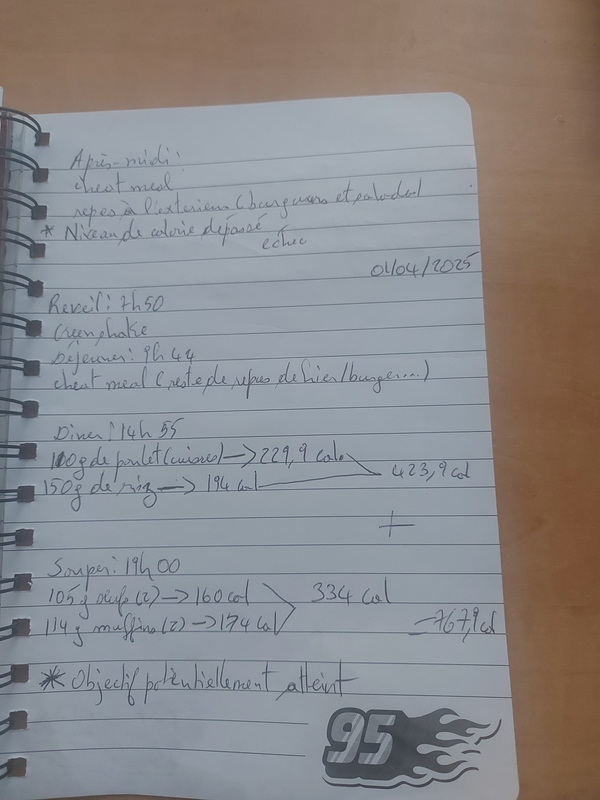 Après-midi:
cheat meal
repas à l'extérieur (burgeurs et salade)
* Niveau de calorie dépassé
échec
01/04/2025
Reveil: 7h50
Green shake
Déjeuner: 9h44
cheat meal (reste de repas de hier/burger...)
Diner: 14h55
100g de poulet (cuisses) -> 229,9 calo
150g de riz -> 194 cal
423,9 cal
+
Souper: 19h00
105g oeufs (2) -> 160 cal
334 cal
114g muffins (2) -> 174 cal
=767,9 cal
* Objectif potentiellement atteint
95